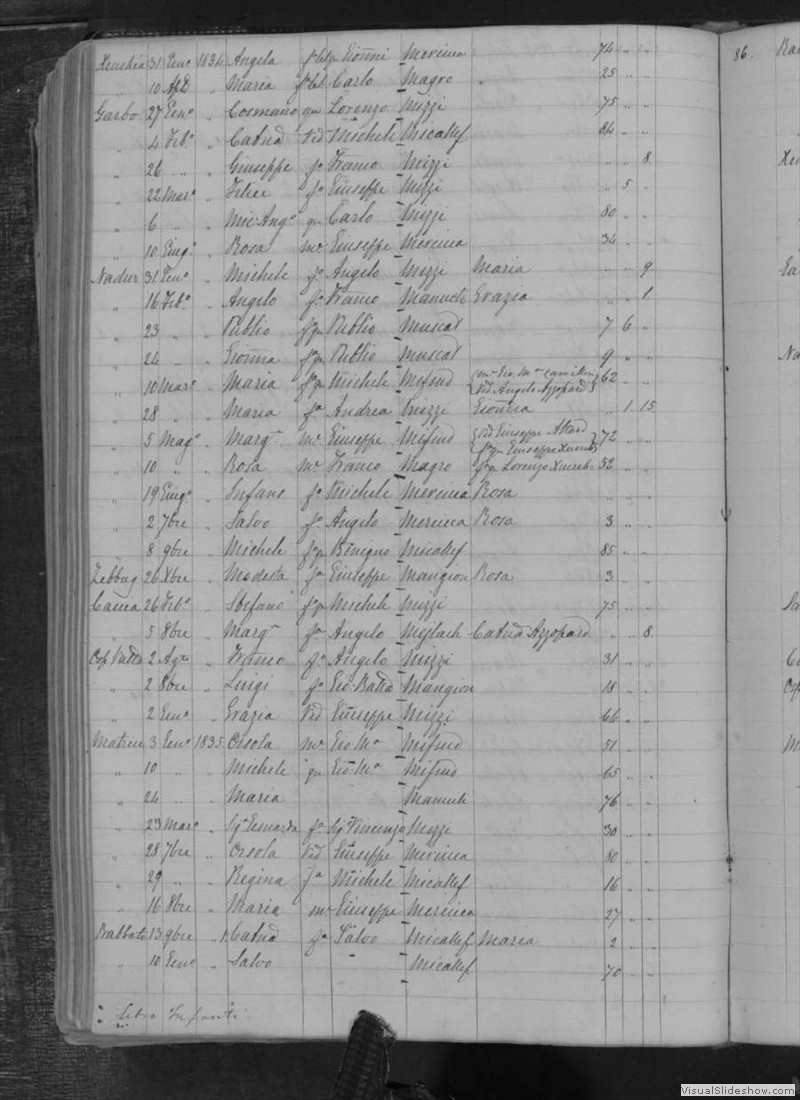 Xeuchia 31 Genº 1834 Angela Giõñni Mercieca 74 " "
" 10 Apl " Maria Carlo Magro 25 " "
Garbo 27 Genº " Cosmano qm Lorenzo Mizzi 75 " "
" 4 Febº " Catnª Vid Michele Micallef 84 " "
" 26 " " Giuseppe fº Franco Mizzi " " 8
" 22 Marº " Felice fº Giuseppe Mizzi " 5 "
" 6 " " Mic: Angº qm Carlo Mizzi 80 " "
" 10 Giugº " Rosa mº Giuseppe Mercieca 34 " "
Nadur 31 Genº " Michele fº Angelo Mizzi Maria " " 9
" 16 Febº " Angelo fº Franco Manueli Grazia " " 1
" 23 " " Publio Publio Muscat 7 6 "
" 24 " " Publio Muscat 9 " "
" 10 Marº " Maria Michele Mifsud Vid. Angelo Azzopard 62 " "
" 28 " " Maria fª Andrea " 1 15
" 5 Magº " Margª mº Giuseppe Mifsud Vid Giuseppe Attard Giuseppe Xuereb 72 " "
" 10 " " Rosa mº Franco Magro Lorenzo Xuereb 52 " "
" 19 Giugº " Infans fº Michele Mercieca Rosa " " "
" 2 7bre " Salvo fº Angelo Mercieca Rosa 3 " "
" 8 9bre " Michele Benigno Micallef 85 " "
Zebbug 26 Xbre " Modesta fª Giuseppe Mangion Rosa 3 " "
Caccia 26 Febº " Stefano Michele Mizzi 75 " "
" 5 8bre " Margª fª Angelo Mejlach Catnª Azzopard " " 8
2 Agto " Franco fº Angelo Mizzi 31 " "
" 2 8bre " Luigi fº Gio: Batta Mangion 18 " "
" 2 Genº " Grazia Vid Giuseppe Mizzi 66 " "
Matrice 3 Genº 1835 Orsola mº Gio Mª Mifsud 51 " "
" 10 " " Michele qm Gio: Mª Mifsud 65 " "
" 24 " " Maria Manueli 76 " "
" 23 Marº " fª Sigr Vincenzo Mizzi 30 " "
" 28 7bre " Orsola Vid Giuseppe Mercieca 80 " "
" 29 " " Regina fª Michele Micallef 16 " "
" 16 8bre " Maria mº Giuseppe Mercieca 27 " "
Rabbato 13 9bre " Catnª fª Salvo Micallef Maria 2 " "
" 10 Genº " Salvo Micallef 70 " "
Libro Infanti
86.
VisualSlideshow.com